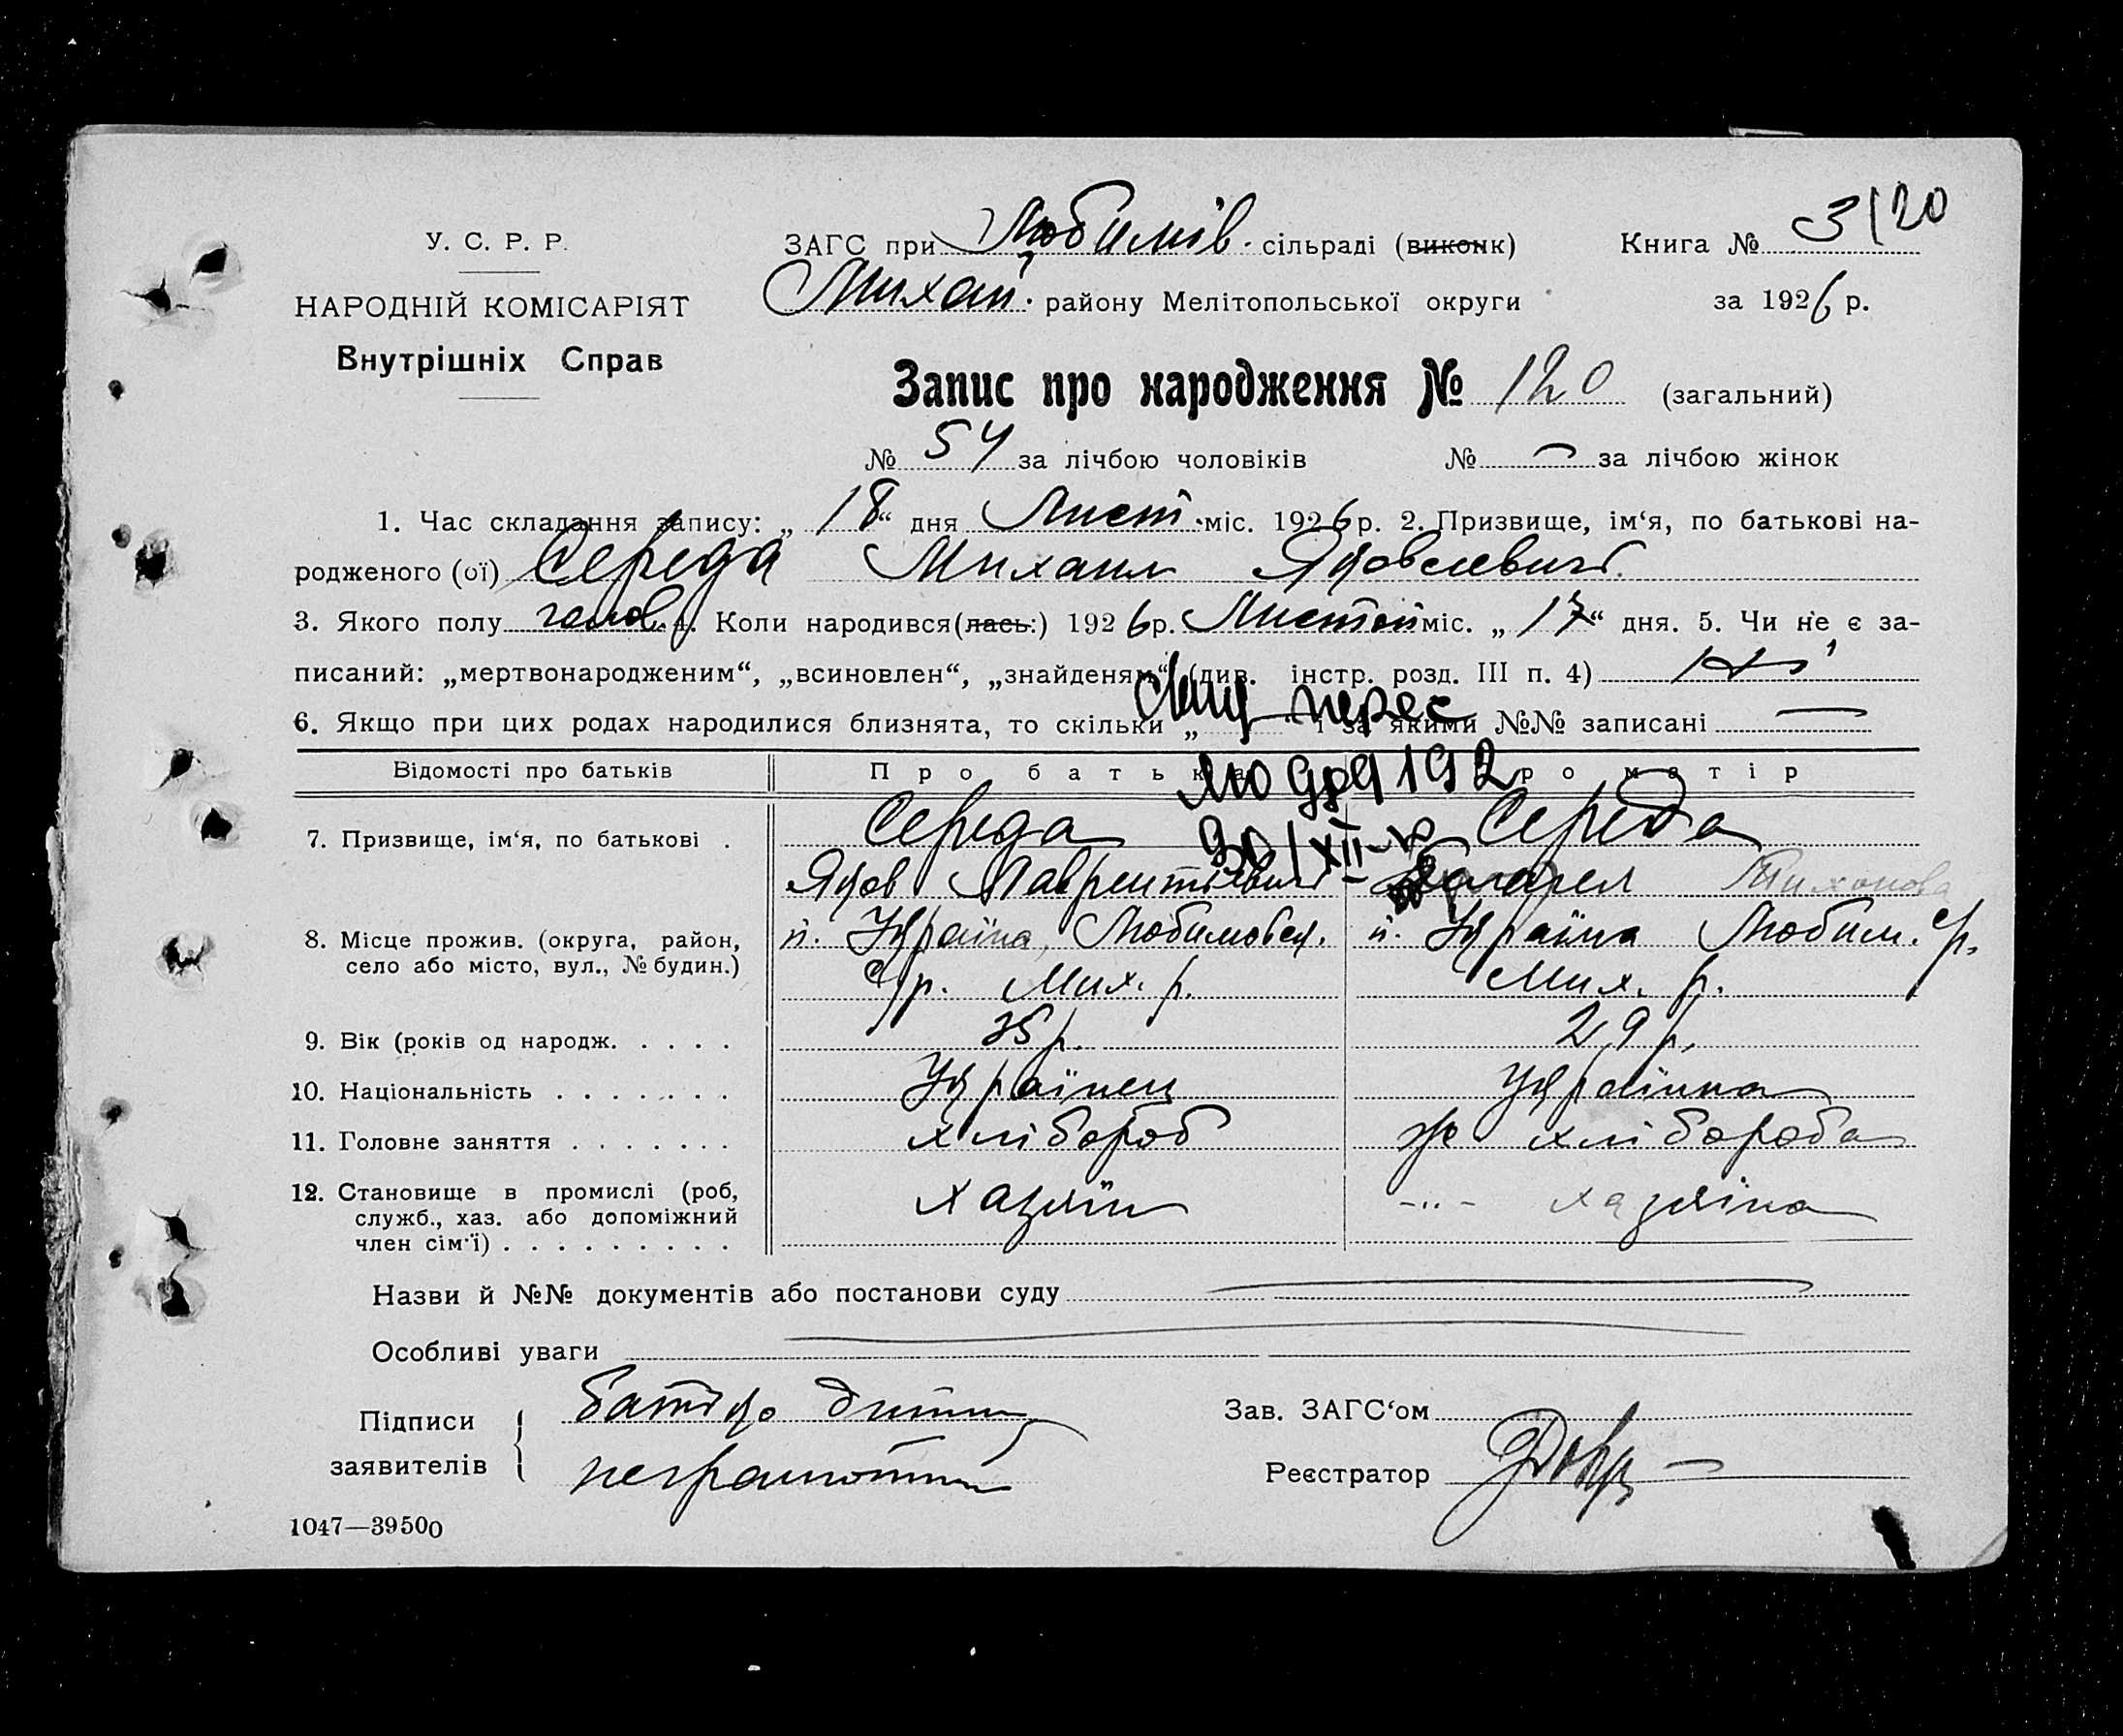 У. С. Р. Р.
НАРОДНІЙ КОМІСАРІЯТ
Внутрішніх Справ
ЗАГС при Любимів. сільраді (виконк)
Михай. району Мелітопольської округи
Книга № 3/20
за 1926 р.
Запис про народження № 120 (загальний)
№ 54 за лічбою чоловіків № — за лічбою жінок
1. Час складання запису: „18“ дня Лист. міс. 1926 р. 2. Призвище, ім‘я, по батькові на-
родженого (ої) Середа Михаил Яковлевич.
3. Якого полу чолов. 4. Коли народився(лась:) 1926 р. Листоп міс. „17“ дня. 5. Чи не є за-
писаний: „мертвонародженим“, „всиновлен“, „знайденям“ (див. інстр. розд. III п. 4) ні
6. Якщо при цих родах народилися близнята, то скільки „ “ і за якими №№ записані —
перес
192
30/XII
Відомості про батьків Про батька Про матір
7. Призвище, ім‘я, по батькові . Середа Середа
Яков Лаврентієвич Тихонова
8. Місце прожив. (округа, район, п. Україна, Любимовск. п. Україна Любим. с/р.
село або місто, вул., № будин.) с/р. Мих. р. Мих. р.
9. Вік (років од народж. . . . . 35 р. 29 р.
10. Національність . . . . . . . Українец Українка
11. Головне заняття . . . . . . . хлібороб хлібороба
12. Становище в промислі (роб, хазяїн -"- хазяїна
служб., хаз. або допоміжний
член сім‘ї) . . . . . . . . .
Назви й №№ документів або постанови суду —
Особливі уваги —
Підписи
заявителів
батько дитини
неграмотний
Зав. ЗАГС‘ом
Реєстратор
1047—39500